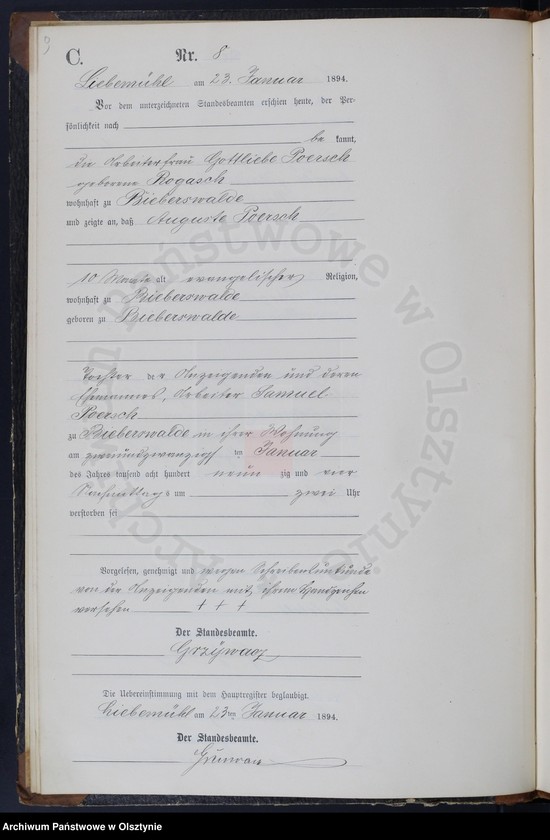 9
C.
Nr. 8
Liebemühl am 23. Januar 1894.
Vor dem unterzeichneten Standesbeamten erschien heute, der Per-
sönlichkeit nach
be kannt,
die Arbeiterfrau Gottliebe Poersch
geborene Rogasch
wohnhaft zu Bieberswalde
und zeigte an, daß Auguste Poersch
10 Monate alt evangelischer Religion,
wohnhaft zu Bieberswalde
geboren zu Bieberswalde
Tochter der Anzeigenden und deren
Ehemannes, Arbeiter Samuel
Poersch
zu Bieberswalde in ihrer Wohnung
am zweiundzwanzigsten Januar
des Jahres tausend acht hundert neun zig und vier
Nachmittags um zwei Uhr
verstorben sei
Vorgelesen, genehmigt und wegen Schreibensunkunde
von der Anzeigenden mit ihrem Handzeichen
versehen + + +
Der Standesbeamte.
Grzywacz
Die Uebereinstimmung mit dem Hauptregister beglaubigt.
Liebemühl am 23ten Januar 1894.
Der Standesbeamte.
Archiwum Państwowe w Olsztynie
Archiwum Państwowe w Olsztynie